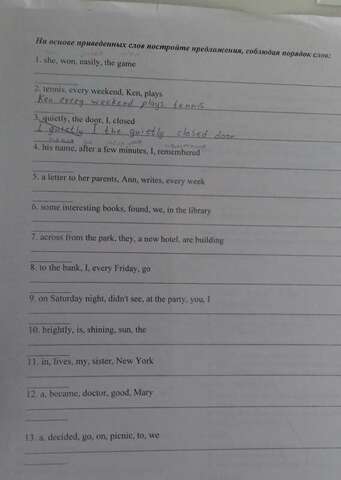 На основе приведенных слов постройте предложения, соблюдая порядок слов:
1. she, won, easily, the game
2. tennis, every weekend, Ken, plays
Ken every weekend plays tennis
3. quietly, the door, I, closed
I quietly I the quietly closed door
4. his name, after a few minutes, I, remembered
5. a letter to her parents, Ann, writes, every week
6. some interesting books, found, we, in the library
7. across from the park, they, a new hotel, are building
8. to the bank, I, every Friday, go
9. on Saturday night, didn't see, at the party, you, I
10. brightly, is, shining, sun, the
11. in, lives, my, sister, New York
12. a, became, doctor, good, Mary
13. a, decided, go, on, picnic, to, we